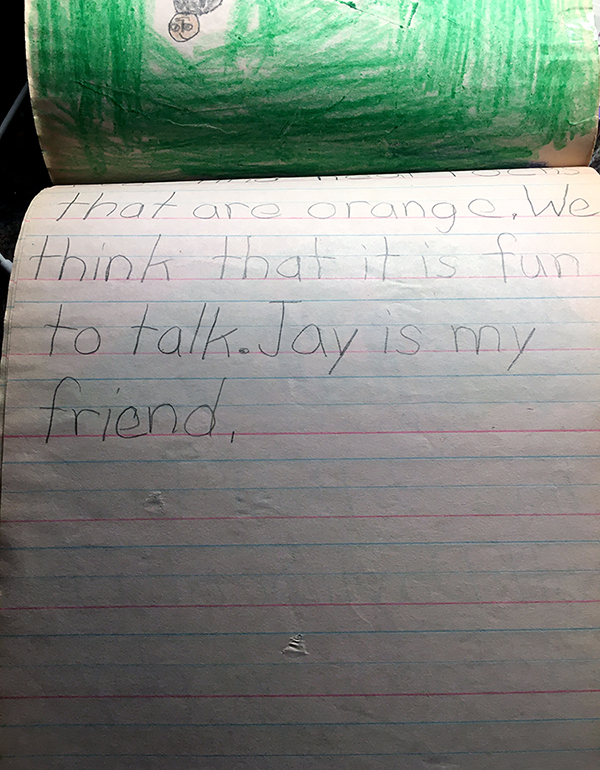 that are orange. We
think that it is fun
to talk. Jay is my
friend.